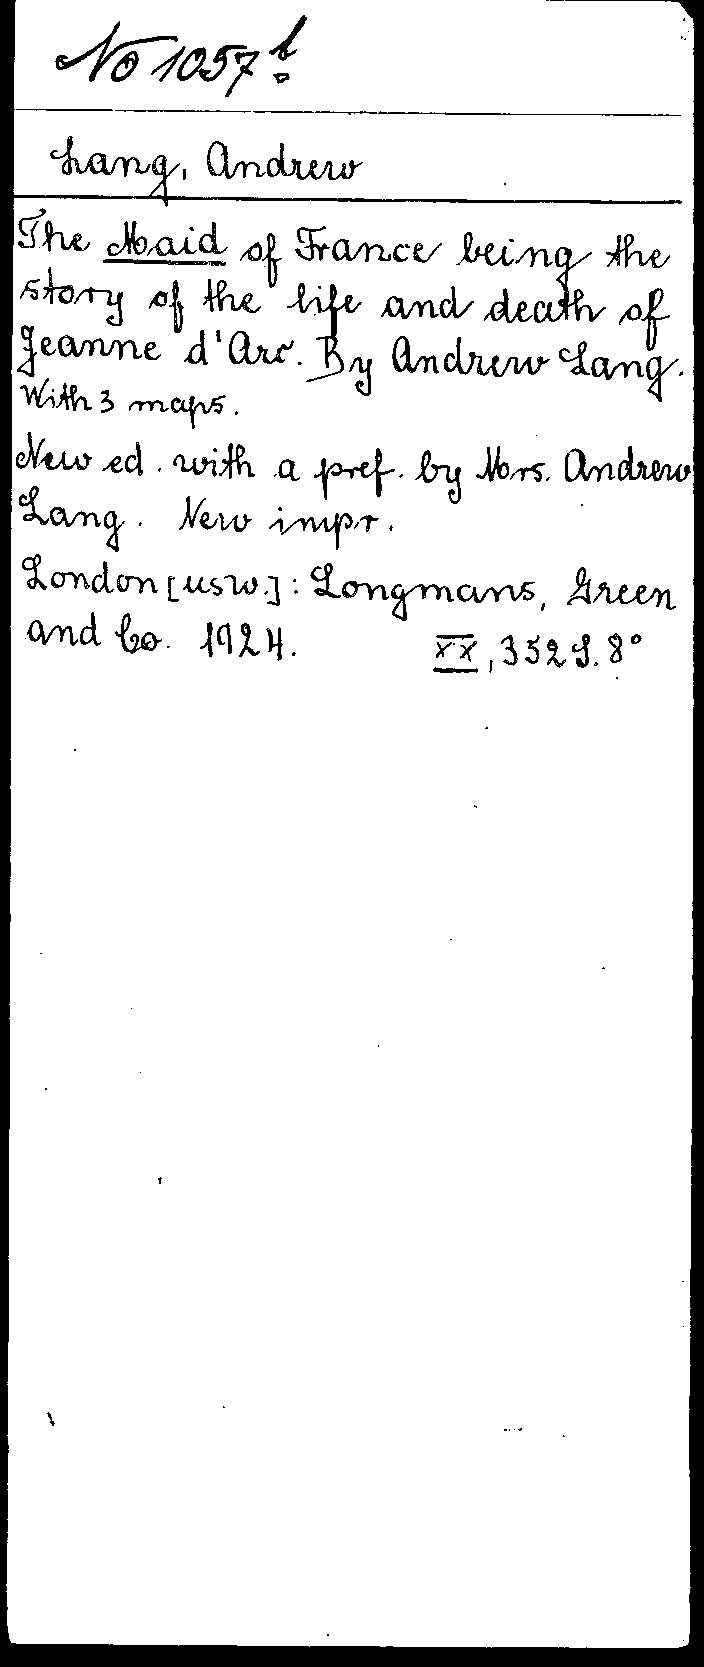 No 1057 b
Lang, Andrew
The Maid of France being the
story of the life and death of
Jeanne d'Arc. By Andrew Lang.
With 3 maps.
New ed. with a pref. by Mrs. Andrew
Lang. New impr.
London [usw.]: Longmans, Green
and Co. 1924. XX, 352 S. 8°